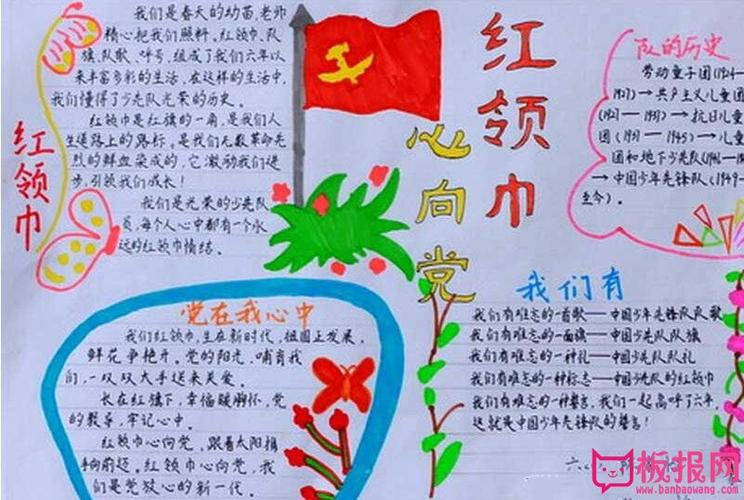 红领巾
我们是春天的幼苗,老师
精心把我们照料。红领巾、队
旗、队歌、呼号,组成了我们六年以
来丰富多彩的生活,在这样的生活中,
我们懂得了少先队光荣的历史。
红领巾是红旗的一角,是我们人
生道路上的路标。是我们无数革命先
烈的鲜血染成的,它激动我们进
步,引领我们成长!
我们是光荣的少先队
员,每个人心中都有一个永
远的红领巾情结。
红领巾
心向党
队的历史
劳动童子团(1924—
1927)→共产主义儿童团
(1927—1937)→抗日儿童
团(1931—1945)→儿童
团和地下少先队(1946—19
→中国少年先锋队(1949—
至今)。
党在我心中
我们红领巾,生在新时代,祖国正发展,
鲜花争艳开。党的阳光,哺育我
们,一双双大手送来关爱。
长在红旗下,幸福暖胸怀,党
的教导,牢记心中。
红领巾心向党,跟着太阳指
向前迈。红领巾心向党,我
们是党放心的新一代。
我们有
我们有难忘的一首歌——中国少年先锋队队歌
我们有难忘的一面旗——中国少先队队旗
我们有难忘的一种礼——中国少先队队礼
我们有难忘的一种标志——中国少先队的红领巾
我们有难忘的一种誓言,我们一起高呼了六年,
这就是中国少年先锋队的誓言!
板报网
www.banbaowang.com